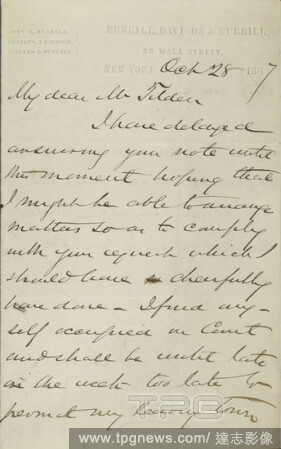 JOHN E. BURRILL,
BURRILL, DAVISON & BURRILL,
WALL STREET,
NEW YORK Oct 28 1867
My dear Mr Tilden
I have delayed
answering your note until
this moment hoping that
I might be able to arrange
matters so as to comply
with your request which I
should have cheerfully
have done – I find my-
self occupied in Court
and shall be until late
in the week too late to
permit my leaving town
TPG
www.tpgnews.com / 達志影像